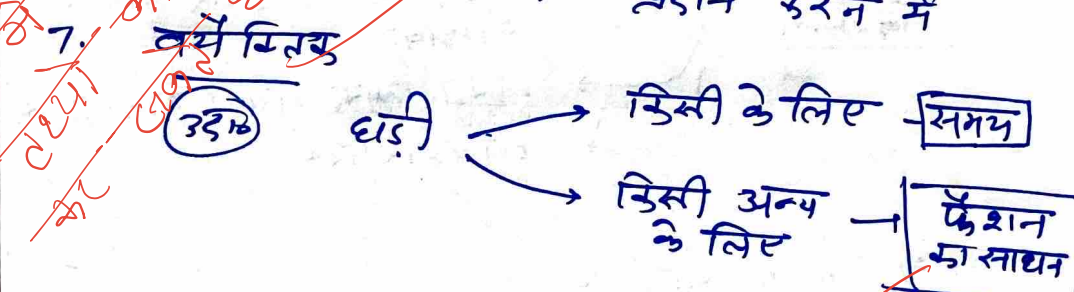 करने में
7. वयैक्तिक
उदा० घड़ी → किसी के लिए - समय
→ किसी अन्य के लिए - फैशन का साधन
तथ्यो